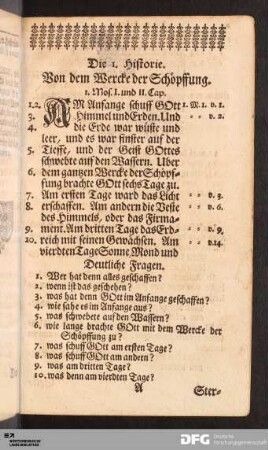 Die 1. Historie.
Von dem Wercke der Schöpffung.
1. Mos. I. und II. Cap.
1.2. AM Anfange schuff GOtt 1. M. 1. v. 1.
3. Himmel und Erden. Und = = v. 2.
4. die Erde war wüste und
leer, und es war finster auf der
5. Tieffe, und der Geist GOttes
schwebte auf den Wassern. Uber
6. dem gantzen Wercke der Schöpf-
fung brachte GOtt sechs Tage zu.
7. Am ersten Tage ward das Licht = = v. 3.
8. erschaffen. Am andern die Veste = = v. 6.
des Himmels, oder das Firma-
9. ment. Am dritten Tage das Erd- = = v. 9.
10. reich mit seinen Gewächsen. Am = = v.14.
vierdten Tage Sonne, Mond und
Deutliche Fragen.
1. Wer hat denn alles geschaffen?
2. wenn ist das geschehen?
3. was hat denn GOtt im Anfange geschaffen?
4. wie sahe es im Anfange aus?
5. was schwebete auf den Wassern?
6. wie lange brachte GOtt mit dem Wercke der
Schöpffung zu?
7. was schuff GOtt am ersten Tage?
8. was schuff GOtt am andern?
9. was am dritten Tage?
10. was denn am vierdten Tage?
A Ster-
DFG Deutsche
Forschungsgemeinschaft